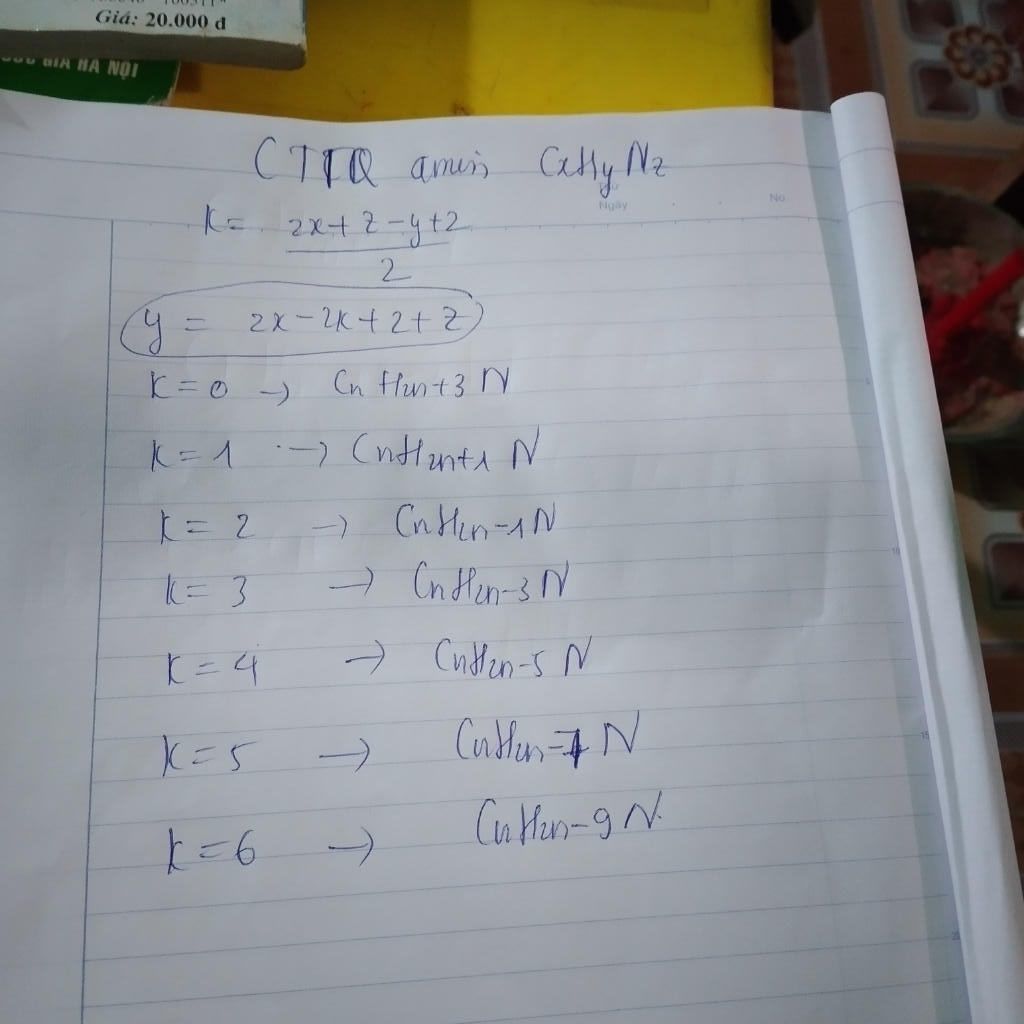 Giá: 20.000 đ
GIA HÀ NỘI
CTTQ amin CxHyNz
Ngày No.
K = 2x+z-y+2
2
y = 2x-2k+2+z
K=0 → CnH2n+3N
K=1 → CnH2n+1N
K=2 → CnH2n-1N
K=3 → CnH2n-3N
K=4 → CnH2n-5N
K=5 → CnH2n-7N
K=6 → CnH2n-9N.